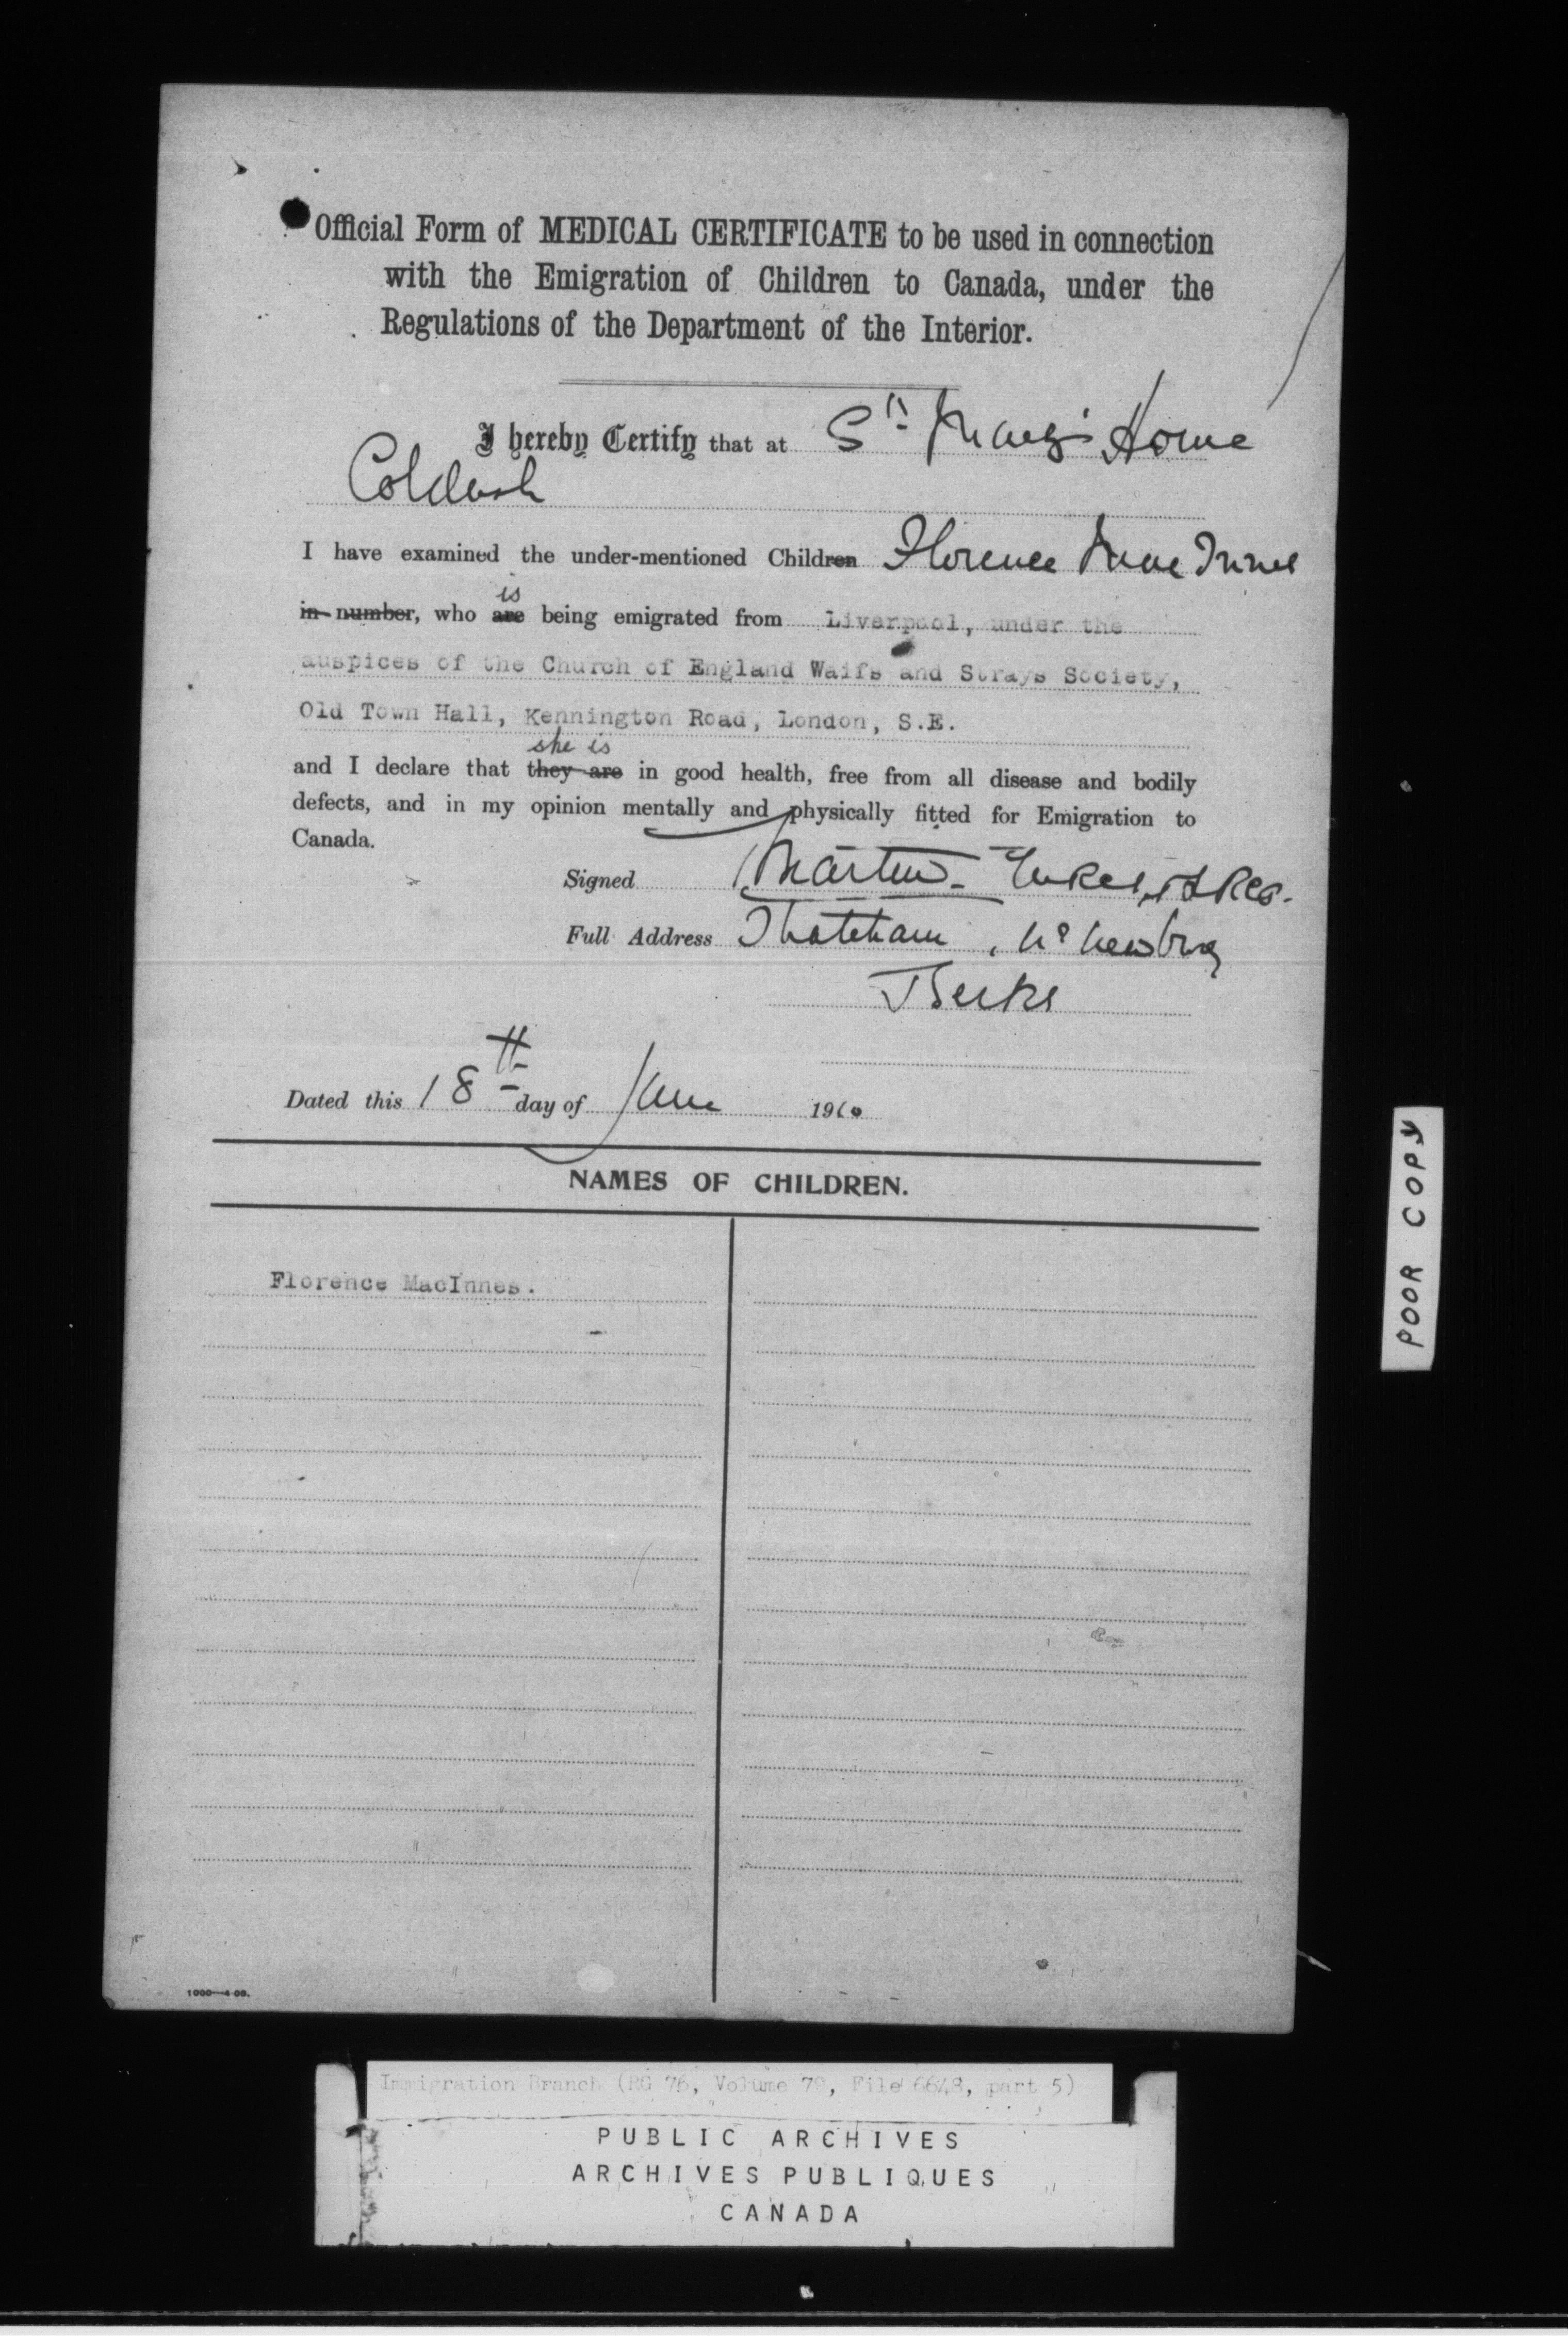 Official Form of MEDICAL CERTIFICATE to be used in connection
with the Emigration of Children to Canada, under the
Regulations of the Department of the Interior.
I hereby Certify that at St Mary's Home
Coldash
I have examined the under-mentioned Children Florence Mac Innes
is
in number, who are being emigrated from Liverpool, under the
auspices of the Church of England Waifs and Strays Society,
Old Town Hall, Kennington Road, London, S.E.
she is
and I declare that they are in good health, free from all disease and bodily
defects, and in my opinion mentally and physically fitted for Emigration to
Canada.
Signed Martin
Full Address Thatcham, Nr Newbury
Berks
Dated this 18th day of June 1910
NAMES OF CHILDREN.
Florence MacInnes.
1000—4-09.
POOR COPY
Immigration Branch (RG 76, Volume 79, File 6648, part 5)
PUBLIC ARCHIVES
ARCHIVES PUBLIQUES
CANADA